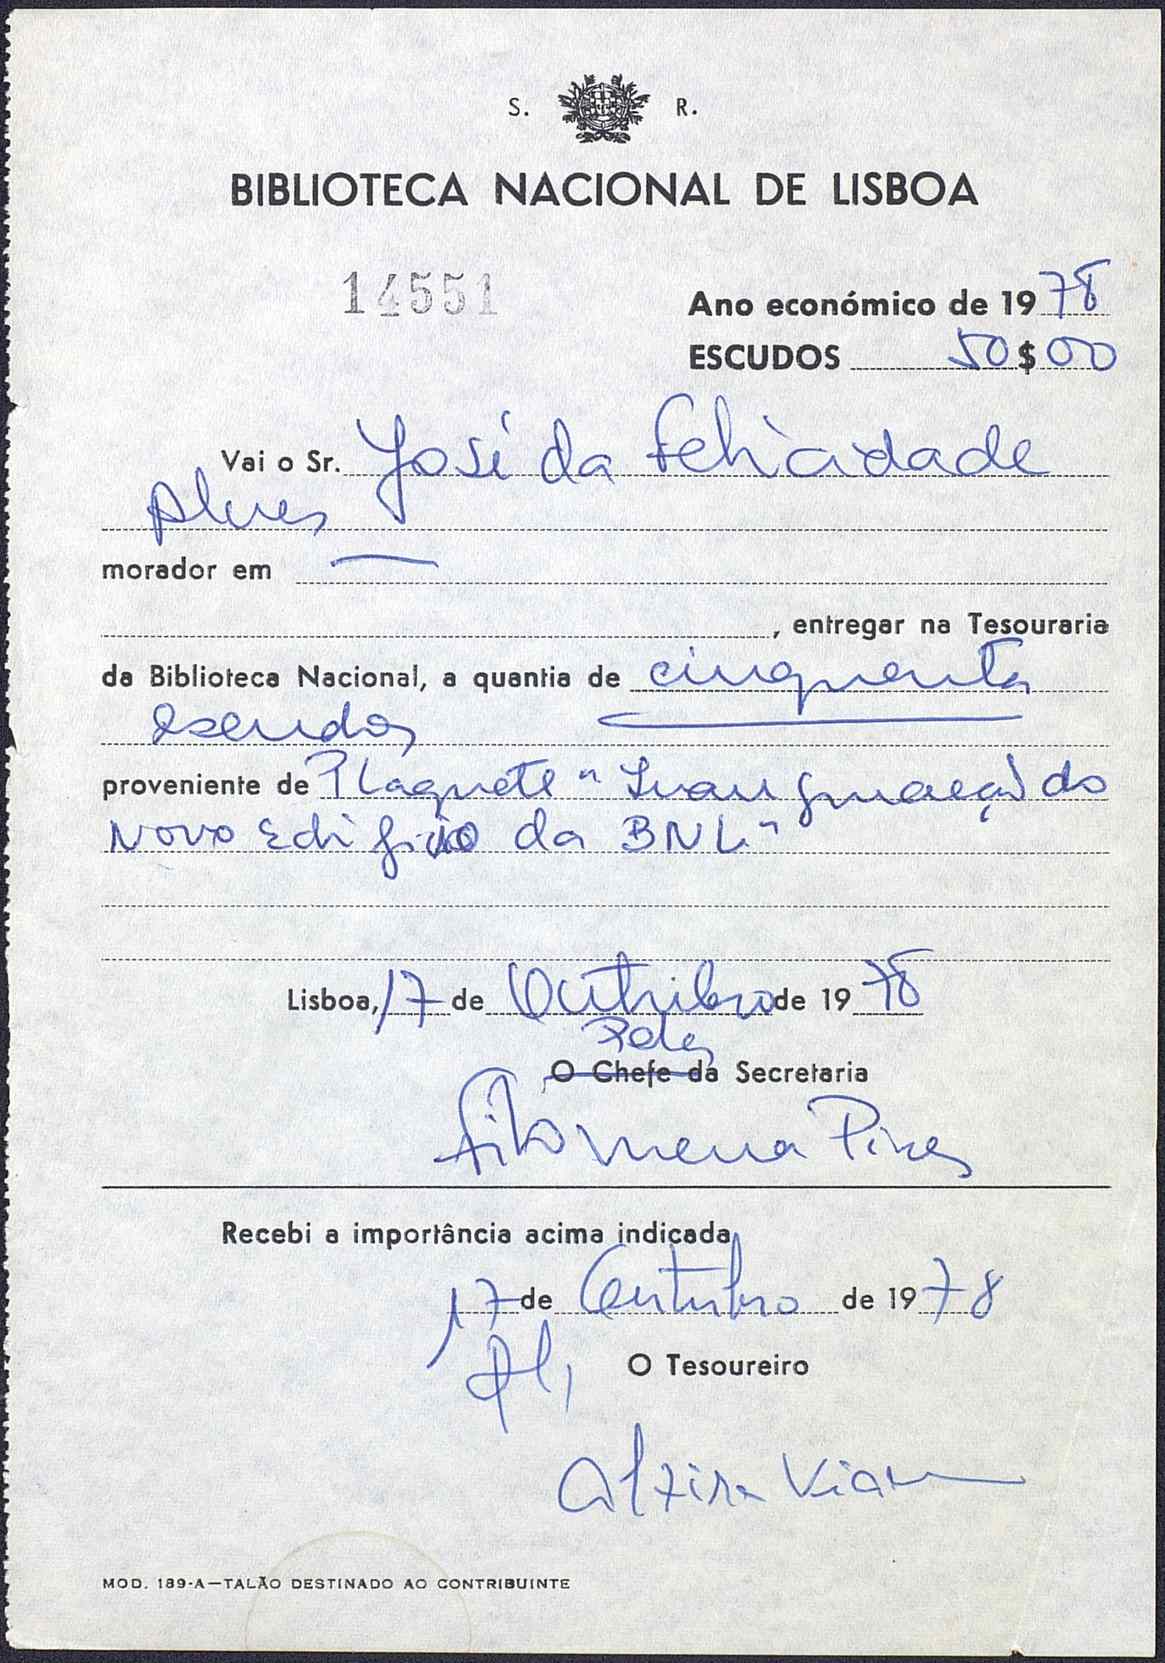 S. R.
BIBLIOTECA NACIONAL DE LISBOA
14551
Ano económico de 1978
ESCUDOS 50$00
Vai o Sr. José da Felicidade
Alves
morador em —
, entregar na Tesouraria
da Biblioteca Nacional, a quantia de cinquenta
escudos
proveniente de Plaquete "Inauguração do
Novo Edifício da BNL"
Lisboa, 17 de Outubro de 1978
Pela
O Chefe da Secretaria
Filomena Pires
Recebi a importância acima indicada,
17 de Outubro de 1978
Pl, O Tesoureiro
Alzira Viana
MOD. 189-A—TALÃO DESTINADO AO CONTRIBUINTE